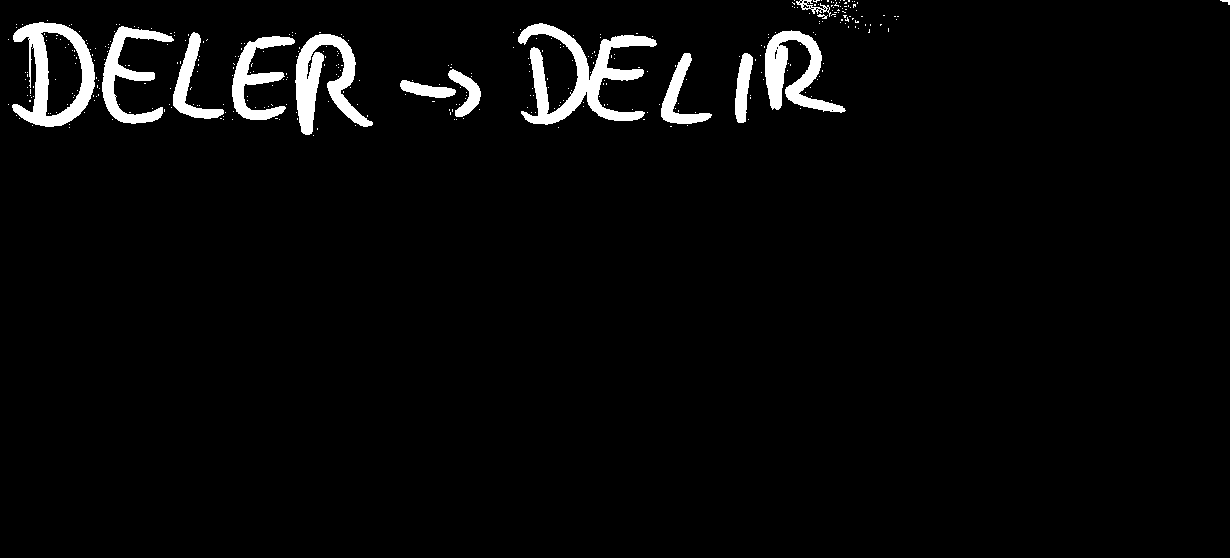 DELER → DELIR